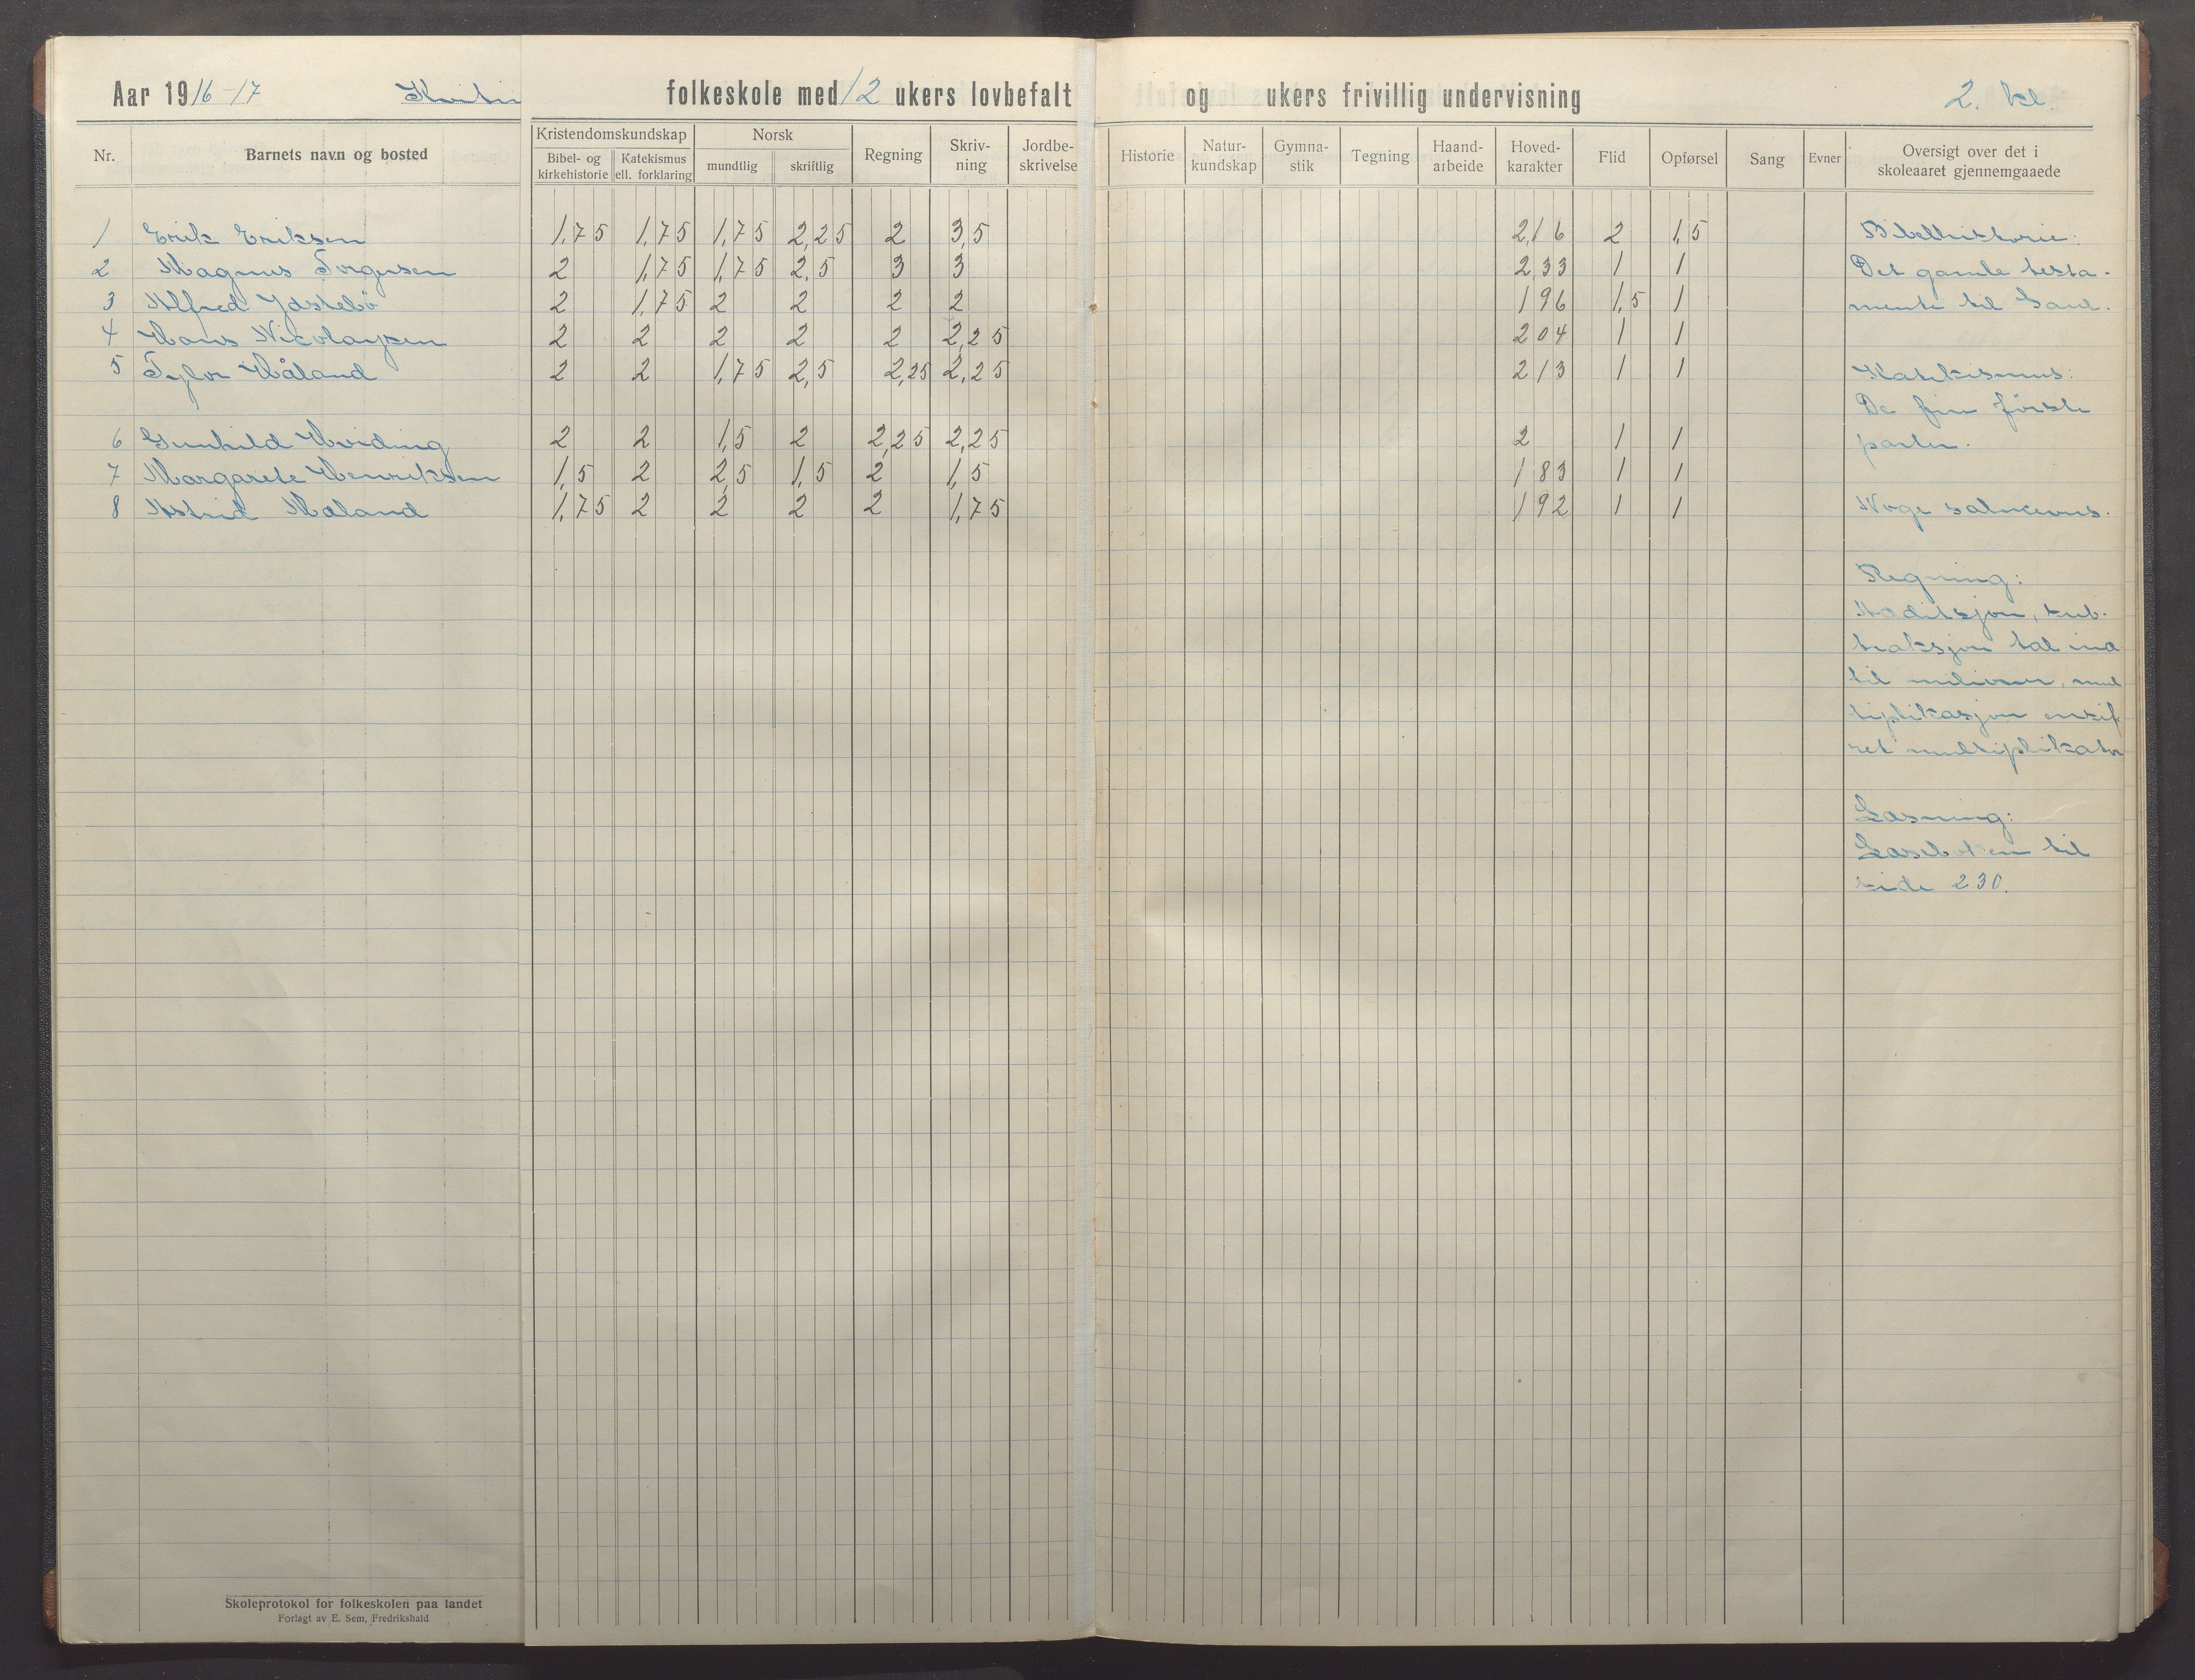 Aar 1916-17 folkeskole med 12 ukers lovbefalt og ukers frivillig undervisning 2. kl.
Nr. Barnets navn og bosted Kristendomskundskap Bibel- og kirkehistorie Katekismus ell. forklaring Norsk mundtlig skriftlig Regning Skriv-ning Jordbe-skrivelse Historie Natur-kundskap Gymna-stik Tegning Haand-arbeide Hoved-karakter Flid Opførsel Sang Evner Oversigt over det i skoleaaret gjennemgaaede
1 Erik Eriksen 1,75 1,75 1,75 2,25 2 3,5 2,16 2 1,5 Bibelhistorie:
2 Magnus Torgersen 2 1,75 1,75 2,5 3 3 2,33 1 1 Det gamle testa-
3 Alfred Ydstebö 2 1,75 2 2 2 2 196 1,5 1 mente til Saul.
4 Hans Nicolaysen 2 2 2 2 2 2,25 204 1 1
5 Håland 2 2 1,75 2,5 2,25 2,25 213 1 1 Katekismus:
De fem förste
6 Gunhild Hviding 2 2 1,5 2 2,25 2,25 2 1 1 parter.
7 Margarete Henriksen 1,5 2 2,5 1,5 2 1,5 183 1 1
8 Astrid Maland 1,75 2 2 2 2 1,75 192 1 1 Noge salmevers.
Regning:
Addisjon, sub-
traksjon tal ind
til milioner, mul
tiplikasjon ensif
ret multiplikator
Læsning:
Læseboken til
side 230.
Skoleprotokol for folkeskolen paa landet
Forlagt av E. Sem, Fredrikshald